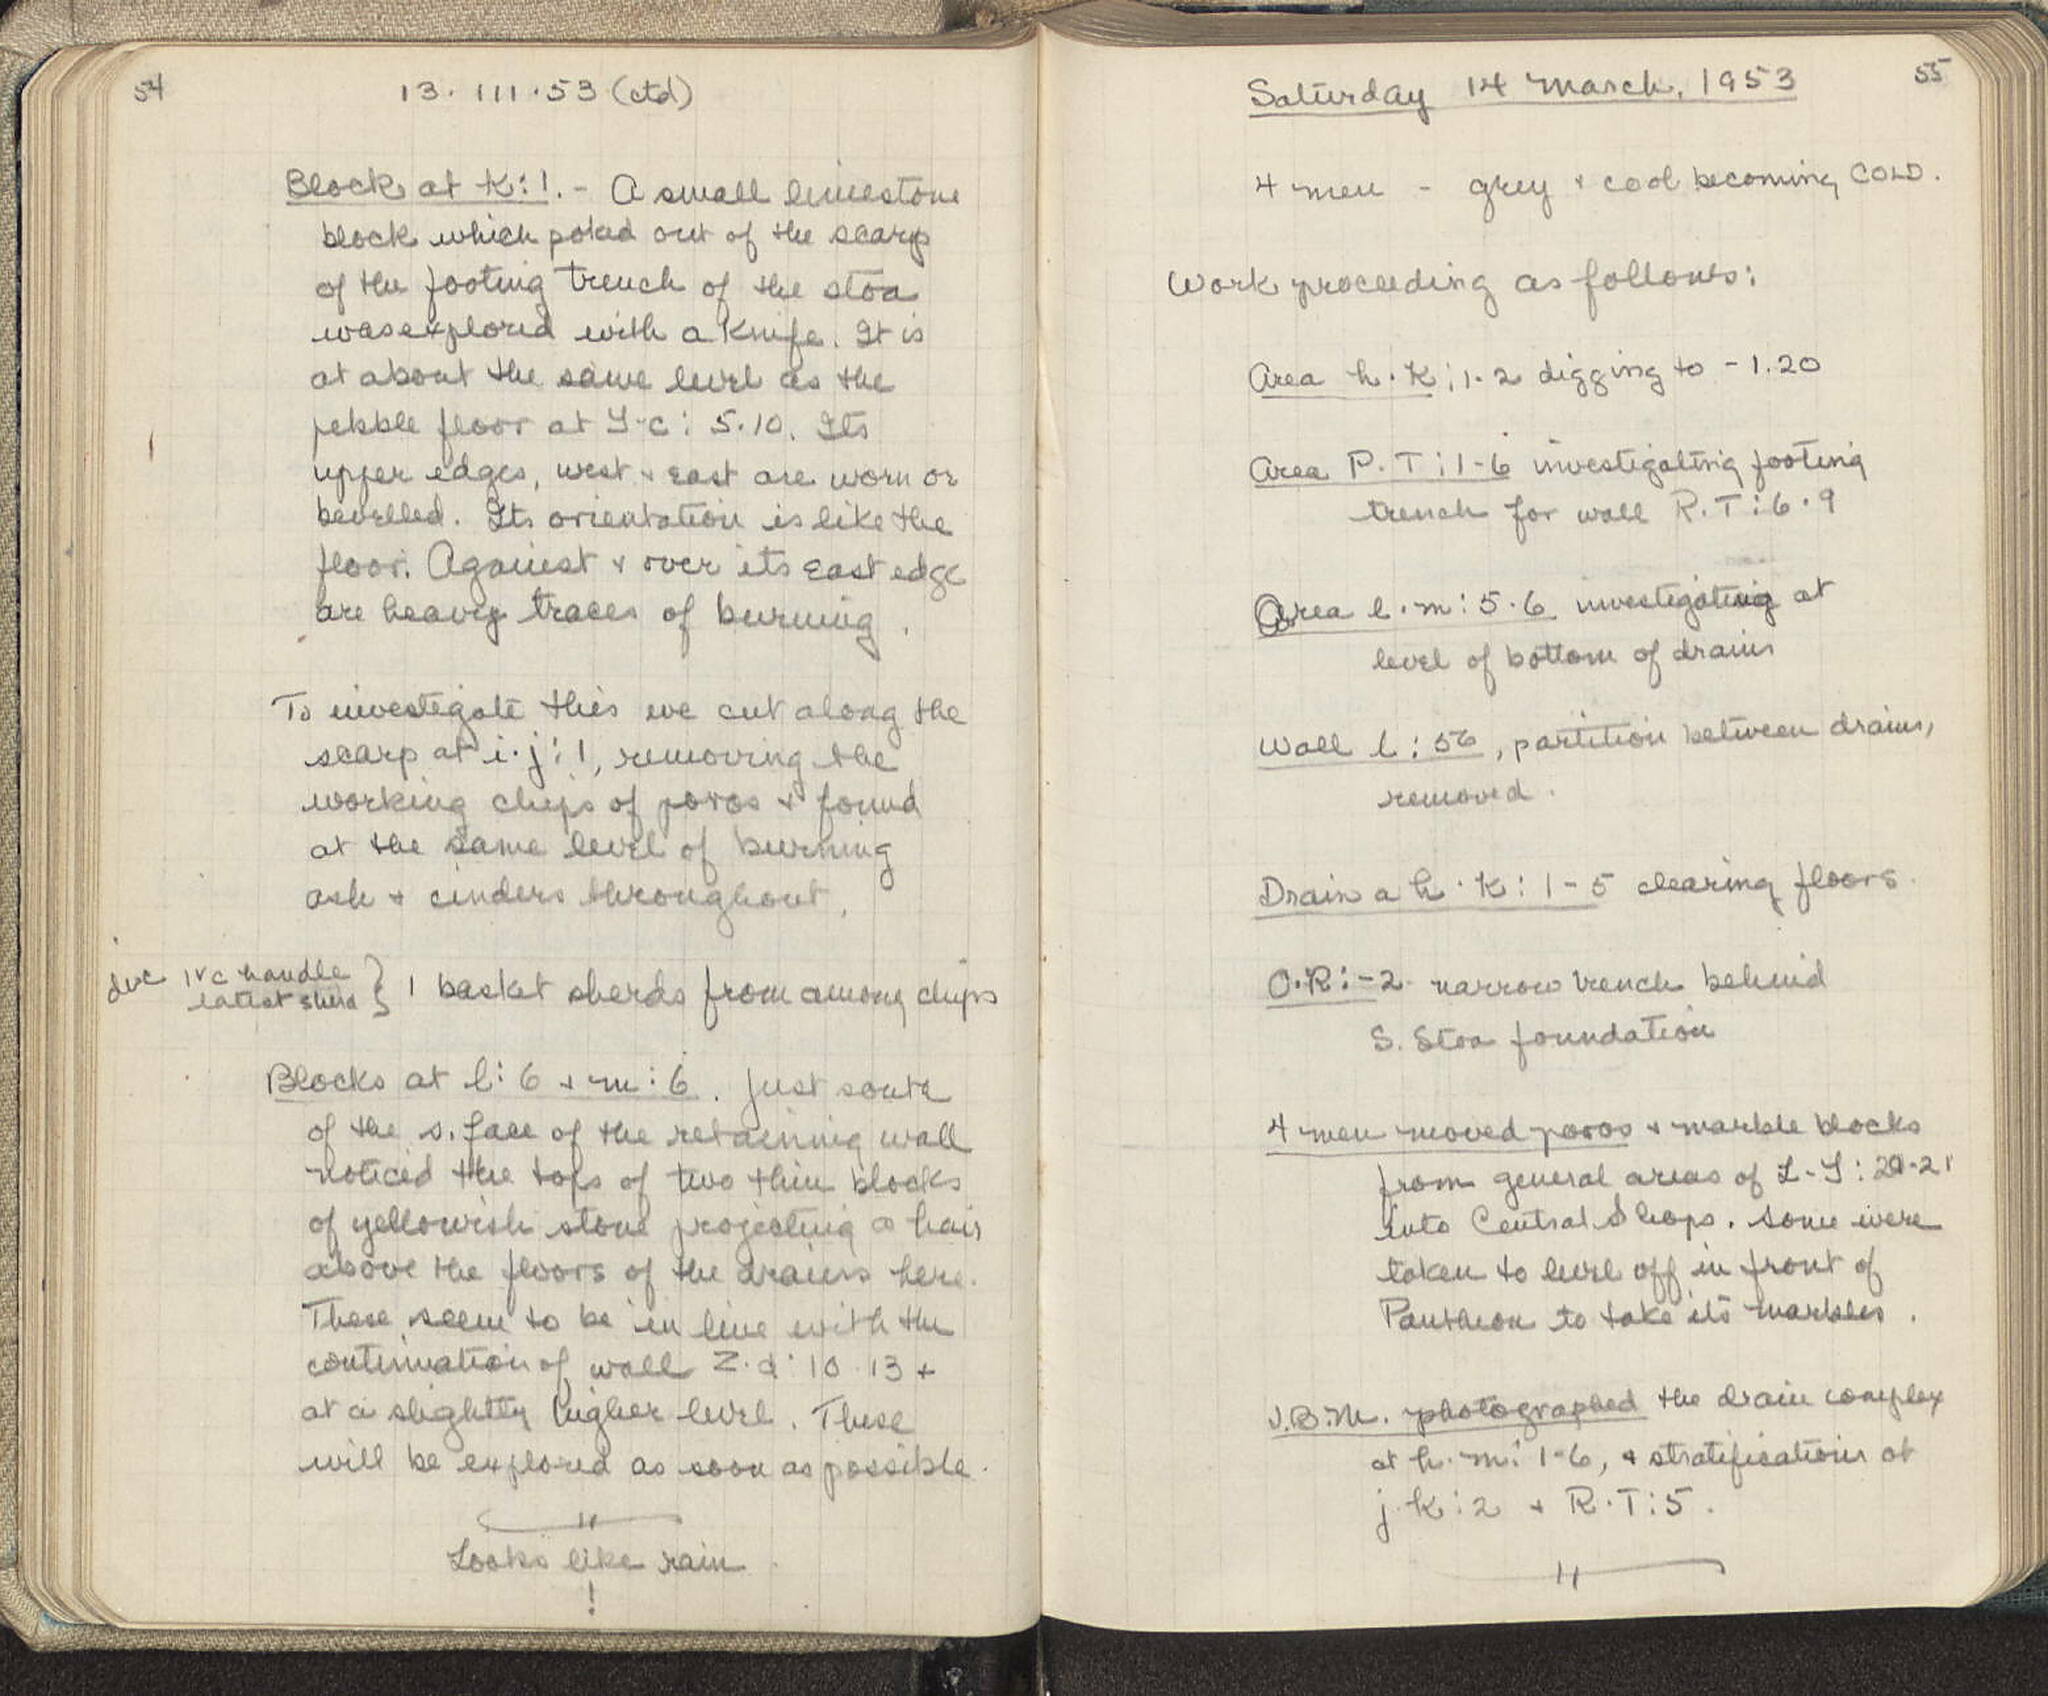 54
13. III. 53 (ctd)
Block at K:1. - A small limestone
block which poked out of the scarp
of the footing trench of the stoa
was explored with a knife. It is
at about the same level as the
pebble floor at Y-c: 5.10. Its
upper edges, west & east are worn or
bevelled. Its orientation is like the
floor. Against & over its east edge
are heavy traces of burning.
To investigate this we cut along the
scarp at i.j:1, removing the
working chips of poros & found
at the same level of burning
ash & cinders throughout.
IV c handle
latest sherd } 1 basket sherds from among chips
Blocks at l:6 & m:6. Just south
of the s. face of the retaining wall
noticed the tops of two thin blocks
of yellowish stone projecting a hair
above the floors of the drains here.
These seem to be in line with the
continuation of wall Z.d: 10.13 &
at a slightly higher level. These
will be explored as soon as possible.
"
Looks like rain
!
55
Saturday 14 March, 1953
4 men - grey & cool becoming COLD.
Work proceeding as follows:
Area h.K:1.2 digging to -1.20
Area P.T:1-6 investigating footing
trench for wall R.T:6.9
Area l.m:5.6 investigating at
level of bottom of drains
Wall l:56, partition between drains,
removed.
Drain a h.K:1-5 clearing floors.
O.R:-2. narrow trench behind
S. Stoa foundation
4 men moved poros & marble blocks
from general areas of L-Y: 20-21
into Central Shops. Some were
taken to level off in front of
Pantheon to take its marbles.
J.B.M. photographed the drain complex
at h.m: 1-6, & stratification at
j.K:2 & R.T:5.
"